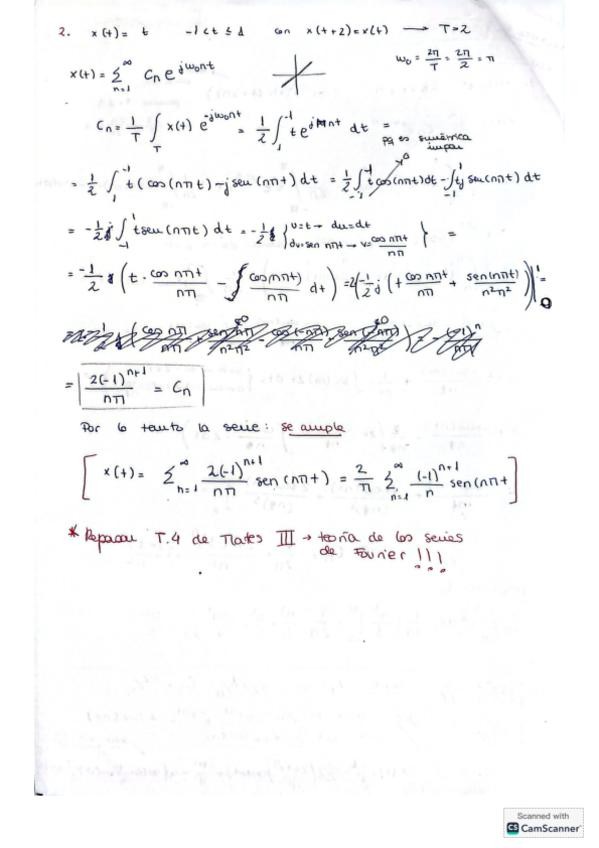 2. x(t) = t -1 < t ≤ 1 con x(t+2) = x(t) → T=2
ω₀ = 2π/T = 2π/2 = π
x(t) = Σ_{n=1}^{∞} Cn e^{jω₀nt}
Cn = 1/T ∫_T x(t) e^{-jω₀nt} = 1/2 ∫_1^{-1} t e^{jπnt} dt =
pq es simétrica impar
= 1/2 ∫_1^{-1} t (cos(nπt) - j sen(nπt)) dt = 1/2 ∫_{-1}^{1} t cos(nπt) dt - ∫_{-1}^{1} tj sen(nπt) dt
= -1/2 j ∫_{-1}^{1} t sen(nπt) dt = -1/2 j { u=t → du=dt dv=sen nπt → v=cos nπt/nπ } =
= -1/2 j (t · cos nπt/nπ - ∫ cos(nπt)/nπ dt) = 2(-1/2 j (t cos nπt/nπ + sen(nπt)/n²π²))|_0^1 =
= 2(-1)^{n+1}/nπ = Cn
Por lo tanto la serie: se ampla
[ x(t) = Σ_{n=1}^{∞} 2(-1)^{n+1}/nπ sen(nπt) = 2/π Σ_{n=1}^{∞} (-1)^{n+1}/n sen(nπt ]
* Repasar T.4 de Mates III → teoría de las series
de Fourier !!!
Scanned with
CS CamScanner